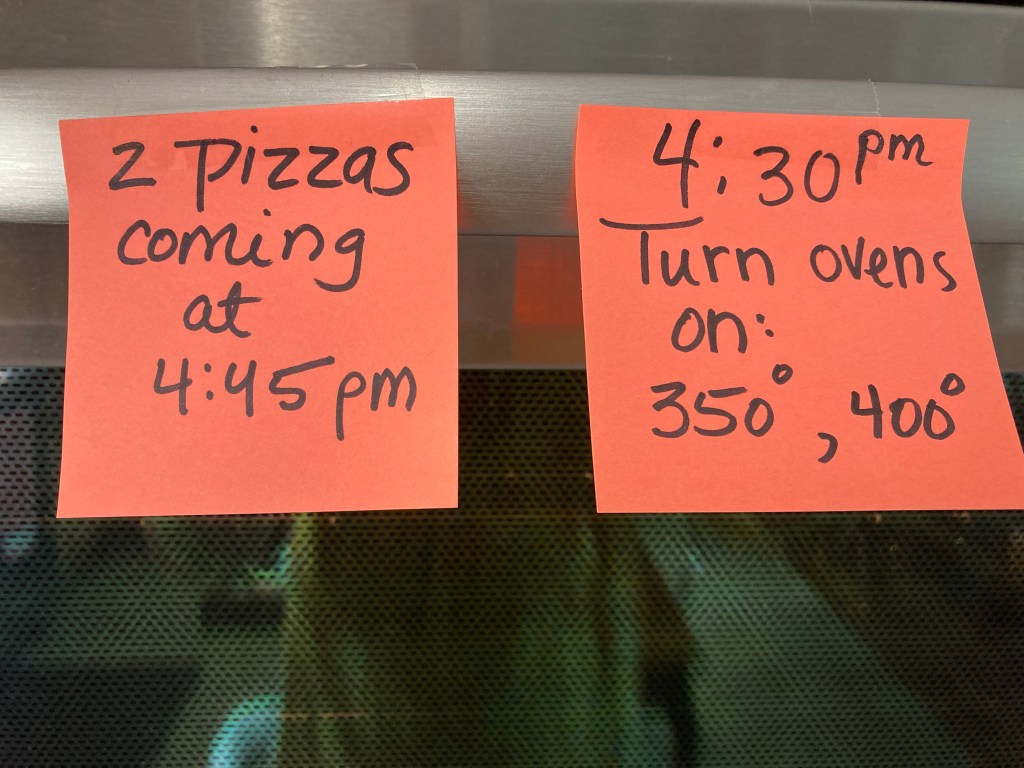 2 Pizzas
coming
at
4:45pm
4:30pm
Turn ovens
on:
350°, 400°